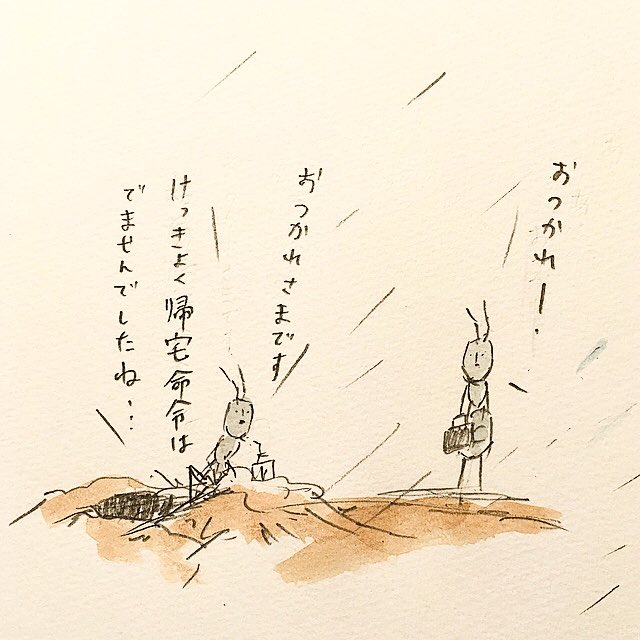 おつかれー.
おつかれさまです
けっきょく帰宅命令は
でませんでしたね…